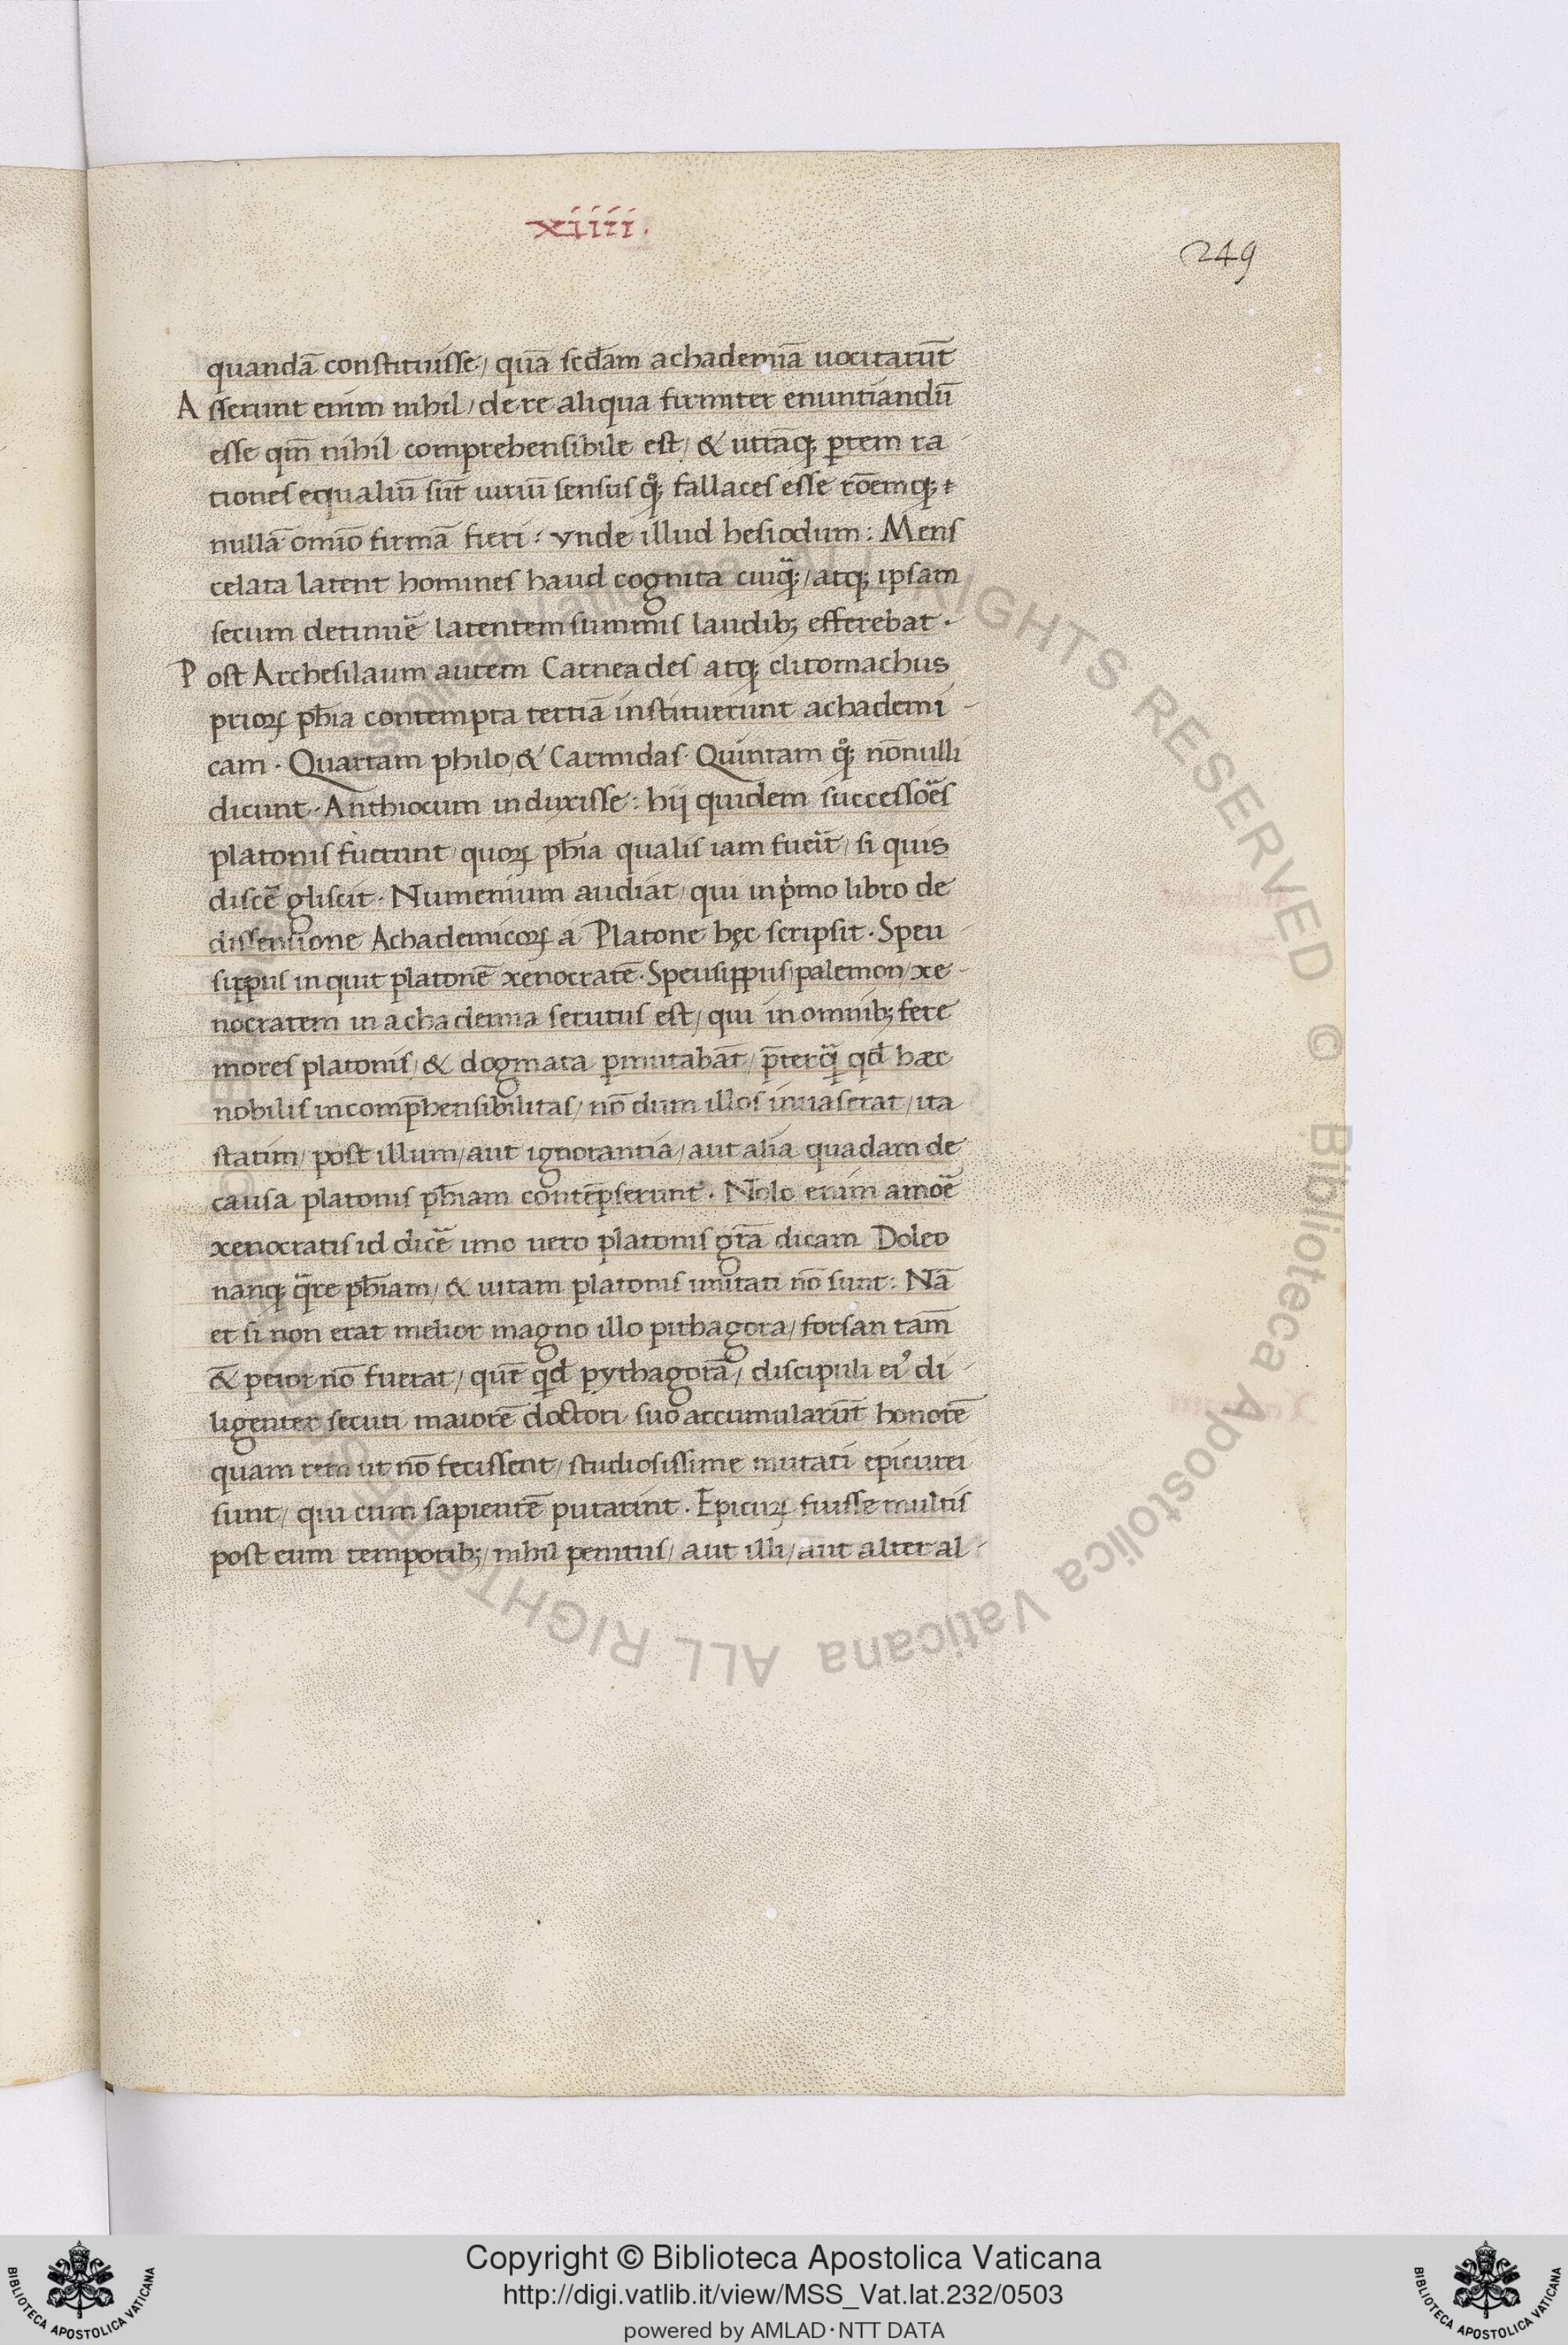 xiiii.
249
quandā constituisse / quā scđam achademiā uocitarūt
Asserunt enim nihil / de re aliqua firmiter enuntiandū
esse qm̄ nihil comprehensibile est / & utrāq; ꝑtem ra-
tiones equaliū sūt uiriū sensus qͦ; fallaces esse rōemq; &
nullā omīo firmā fieri : vnde illud hesiodum : Mens
celata latent homines haud cognita cuiqᷓ; / atq; ipsam
secum detinuē latentem summis laudib; efferebat .
Post Archesilaum autem Carneades / atq; clitomachus
prioꝝ phīa contempta tertiā instituerunt achademi-
cam . Quartam philo / & Carmidas . Quintam qͦ; nōnulli
dicunt . Anthiocum induxisse : hij quidem successōēs
platonis fuerunt / quoꝝ phīa qualis iam fuēit / si quis
discē gliscit . Numenium audiat / qui in pͥmo libro de
dissensione Achademicoꝝ a Platone hęc scripsit . Speu-
sippus inquit platonē xenocratē . Speusippus / palemon / xe-
nocratem in achademia secutus est / qui in omnib; fere
mores platonis / & dogmata ꝑmutabāt / p̄terqᷓ qđ haec
nobilis incomp̄hensibilitas / nō dum illos inuaserat / ita
statim / post illum / aut ignorantia / aut alia quadam de
causa platonis phīam contēpserunt . Nolo enim amoē
xenocratis id dicē imo uero platonis grā dicam Doleo
nanq; qᷓre phīam / & uitam platonis imitati nō sunt : Nā
et si non erat melior magno illo pithagora / forsan tam̄
& peior nō fuerat / quē qđ pythagorā / discipuli eiꝰ di-
ligenter secuti maiorē doctori suo accumularūt honorē
quam rem ut nō fecissent / studiosissime mutati epicurei
sunt / qui cum sapientē putarint . Epicuꝝ fuisse multis
post eum temporib; / nihil penitus / aut illi / aut alter al-
Copyright © Biblioteca Apostolica Vaticana
http://digi.vatlib.it/view/MSS_Vat.lat.232/0503
powered by AMLAD·NTT DATA
BIBLIOTECA APOSTOLICA VATICANA
BIBLIOTECA APOSTOLICA VATICANA
© Biblioteca Apostolica Vaticana ALL RIGHTS RESERVED © Biblioteca Apostolica Vaticana ALL RIGHTS RESERVED